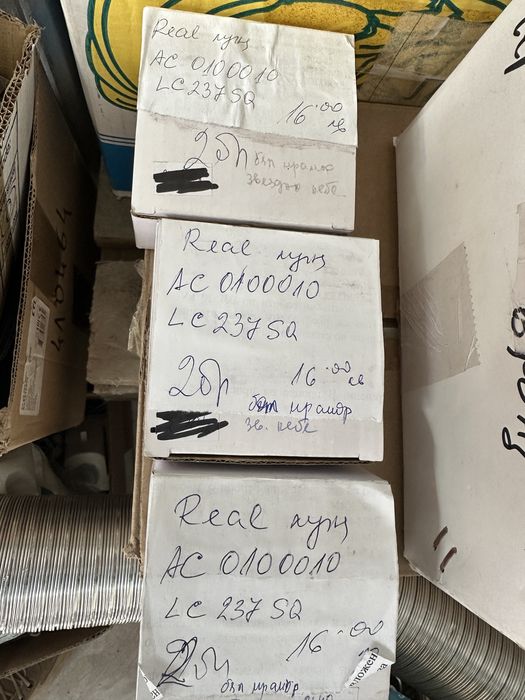 Real лунц
AC 0100010
LC 237 SQ
16.00
лв
2бр
бял мрамор
звездно небе
Real лунц
AC 0100010
LC 237 SQ
2бр
16.00 лв
бял мрамор
зв. небе
Real лунц
AC 0100010
LC 237 SQ
2бр
16.00
бял мрамор
410461